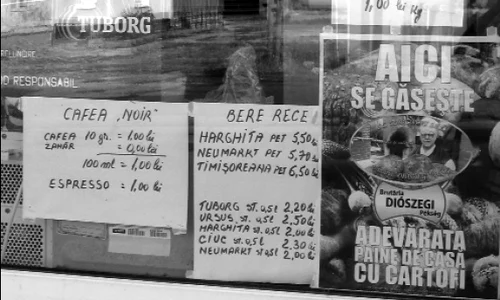 1,00 lei Kg
TUBORG
O RESPONSABIL
CAFEA „NOIR"
CAFEA 10 gr. = 1,00 lei
ZAHĂR = 0,00 lei
100 ml = 1,00 lei
ESPRESSO = 1,00 lei
BERE RECE
HARGHITA PET 5,50 lei
NEUMARKT PET 5,70 lei
TIMIȘOREANA PET 6,50 lei
TUBORG st. 0,5l 2,20 lei
URSUS st. 0,5l 2,50 lei
HARGHITA st. 0,5l 2,00 lei
CIUC st. 0,5l 2,30 lei
NEUMARKT st. 0,5l 2,00 lei
AICI
SE GĂSEȘTE
Brutăria
DIÓSZEGI
Pékség
ADEVĂRATA
PÂINE DE CASĂ
CU CARTOFI